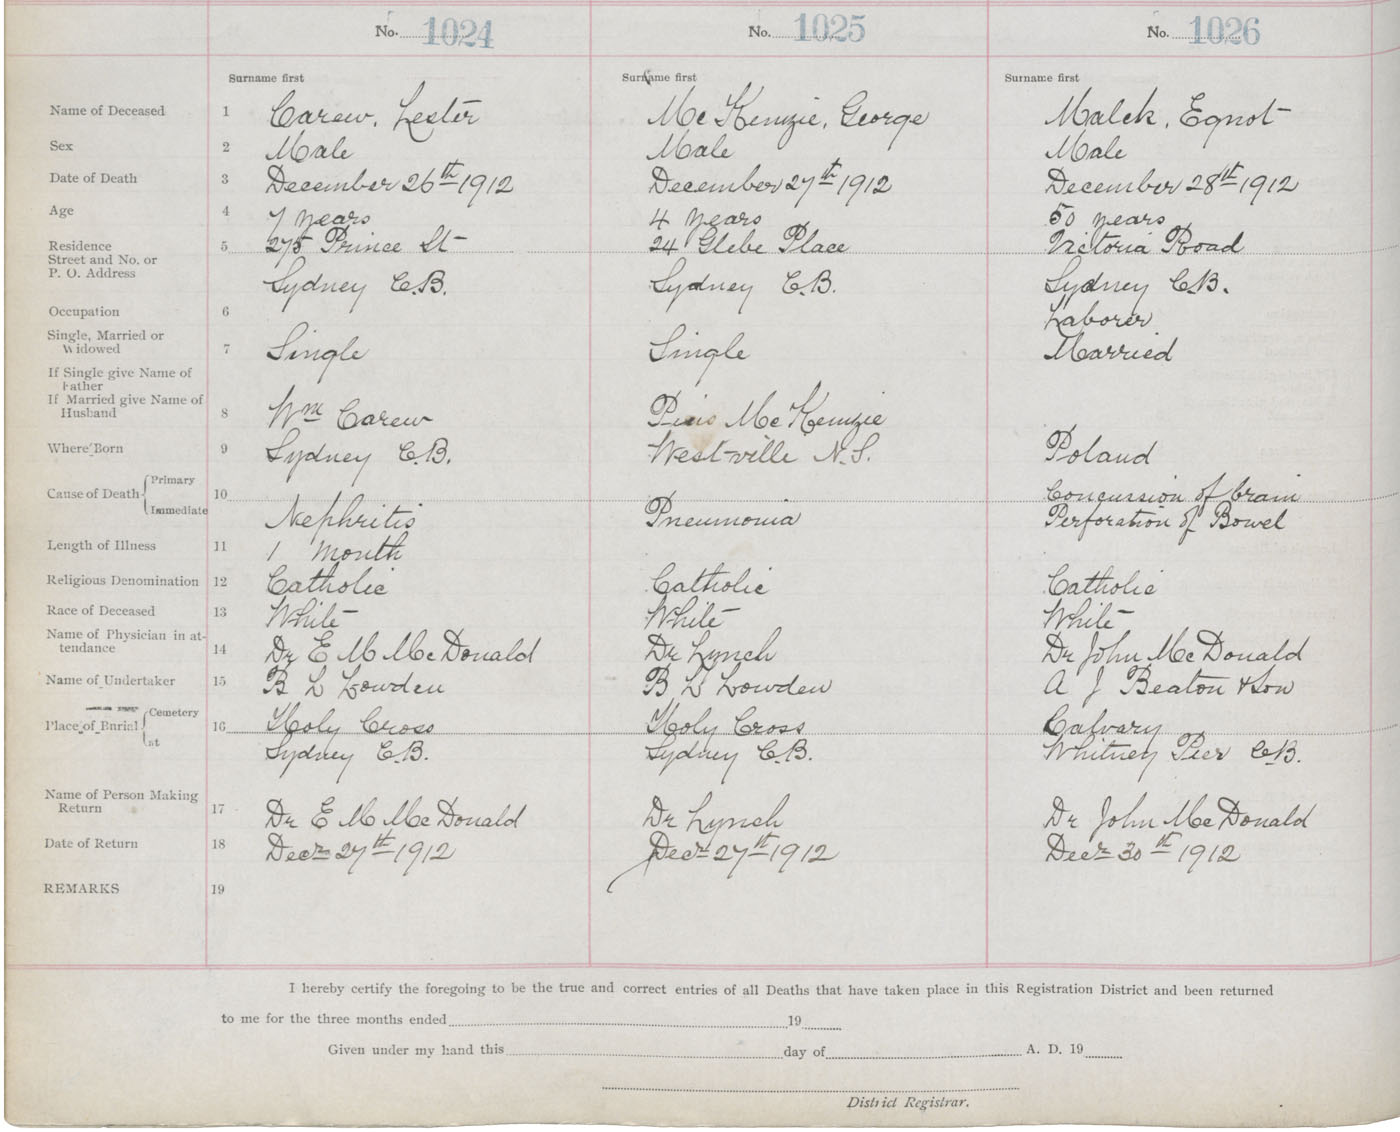 No. 1024 No. 1025 No. 1026
Surname first Surname first Surname first
Name of Deceased 1 Carew, Lester McKenzie, George Malek, Egnot
Sex 2 Male Male Male
Date of Death 3 December 26th 1912 December 27th 1912 December 28th 1912
Age 4 7 years 4 years 50 years
Residence 5 275 Prince St 24 Glebe Place Victoria Road
Street and No. or
P. O. Address Sydney C.B. Sydney C.B. Sydney C.B.
Occupation 6 Laborer
Single, Married or
Widowed 7 Single Single Married
If Single give Name of
Father
If Married give Name of
Husband 8 Wm Carew Pius McKenzie
Where Born 9 Sydney C.B. Westville N.S. Poland
Cause of Death Primary 10 Concussion of brain
Immediate Nephritis Pneumonia Perforation of Bowel
Length of Illness 11 1 month
Religious Denomination 12 Catholic Catholic Catholic
Race of Deceased 13 White White White
Name of Physician in at-
tendance 14 Dr E M McDonald Dr Lynch Dr John McDonald
Name of Undertaker 15 B L Lowden B L Lowden A J Beaton & Son
Place of Burial Cemetery 16 Holy Cross Holy Cross Calvary
at Sydney C.B. Sydney C.B. Whitney Pier C.B.
Name of Person Making
Return 17 Dr E M McDonald Dr Lynch Dr John McDonald
Date of Return 18 Decr 27th 1912 Decr 27th 1912 Decr 30th 1912
REMARKS 19
I hereby certify the foregoing to be the true and correct entries of all Deaths that have taken place in this Registration District and been returned
to me for the three months ended 19
Given under my hand this day of A. D. 19
District Registrar.